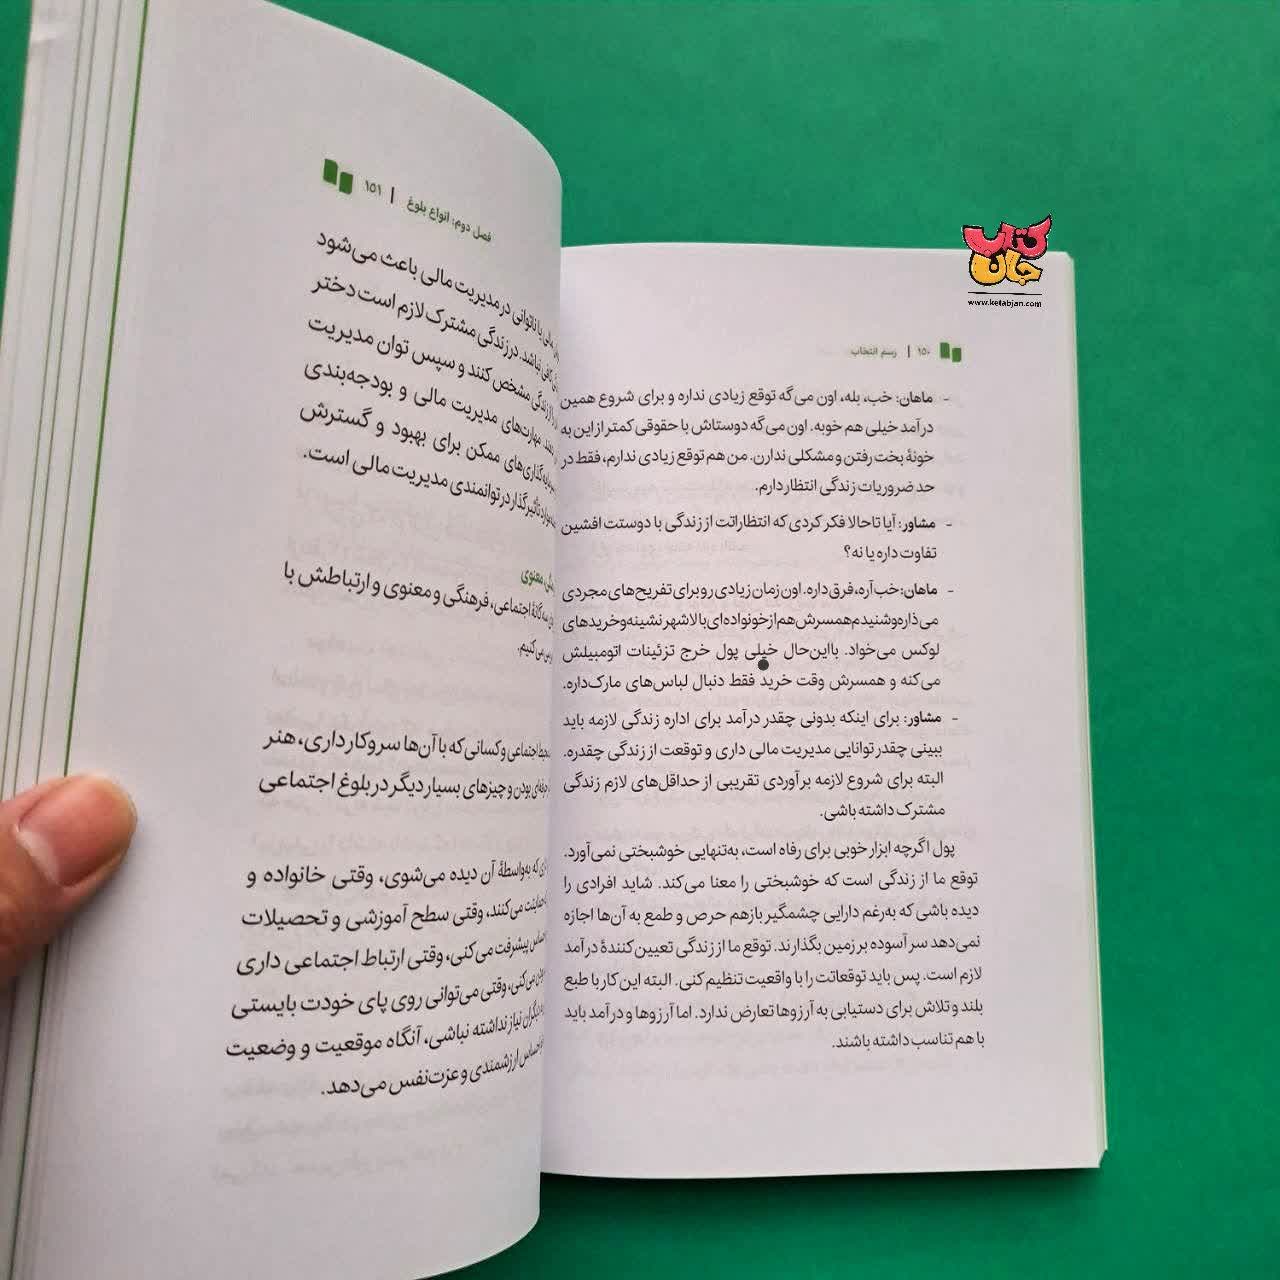 کتاب
جان
www.ketabjan.com
۱۵۰ | رسم انتخاب
- ماهان: خب، بله، اون می‌گه توقع زیادی نداره و برای شروع همین
درآمد خیلی هم خوبه. اون می‌گه دوستاش با حقوقی کمتر از این به
خونهٔ بخت رفتن و مشکلی ندارن. من هم توقع زیادی ندارم، فقط در
حد ضروریات زندگی انتظار دارم.
- مشاور: آیا تا حالا فکر کردی که انتظاراتت از زندگی با دوستت افشین
تفاوت داره یا نه؟
- ماهان: خب آره، فرق داره. اون زمان زیادی رو برای تفریح‌های مجردی
می‌ذاره و شنیدم همسرش هم از خونواده‌ای بالاشهرنشینه و خریدهای
لوکس می‌خواد. بااین‌حال خیلی پول خرج تزئینات اتومبیلش
می‌کنه و همسرش وقت خرید فقط دنبال لباس‌های مارک‌داره.
- مشاور: برای اینکه بدونی چقدر درآمد برای اداره زندگی لازمه باید
ببینی چقدر توانایی مدیریت مالی داری و توقعت از زندگی چقدره.
البته برای شروع لازمه برآوردی تقریبی از حداقل‌های لازم زندگی
مشترک داشته باشی.
پول اگرچه ابزار خوبی برای رفاه است، به‌تنهایی خوشبختی نمی‌آورد.
توقع ما از زندگی است که خوشبختی را معنا می‌کند. شاید افرادی را
دیده باشی که به‌رغم دارایی چشمگیر بازهم حرص و طمع به آن‌ها اجازه
نمی‌دهد سر آسوده بر زمین بگذارند. توقع ما از زندگی تعیین‌کنندهٔ درآمد
لازم است. پس باید توقعاتت را با واقعیت تنظیم کنی. البته این کار با طبع
بلند و تلاش برای دستیابی به آرزوها تعارض ندارد. اما آرزوها و درآمد باید
با هم تناسب داشته باشند.
فصل دوم: انواع بلوغ | ۱۵۱
مالی یا ناتوانی در مدیریت مالی باعث می‌شود
کافی نباشد. در زندگی مشترک لازم است دختر
زندگی مشخص کنند و سپس توان مدیریت
مهارت‌های مدیریت مالی و بودجه‌بندی
سرمایه‌گذاری‌های ممکن برای بهبود و گسترش
تأثیرگذار در توانمندی مدیریت مالی است.
معنوی
سه‌گانهٔ اجتماعی، فرهنگی و معنوی و ارتباطش با
می‌کنیم.
محیط اجتماعی و کسانی که با آن‌ها سروکار داری، هنر
حرفه‌ای بودن و چیزهای بسیار دیگر در بلوغ اجتماعی
که به‌واسطهٔ آن دیده می‌شوی، وقتی خانواده و
حمایتت می‌کنند، وقتی سطح آموزشی و تحصیلات
احساس پیشرفت می‌کنی، وقتی ارتباط اجتماعی داری
می‌کنی، وقتی می‌توانی روی پای خودت بایستی
دیگران نیاز نداشته نباشی، آنگاه موقعیت و وضعیت
احساس ارزشمندی و عزت‌نفس می‌دهد.